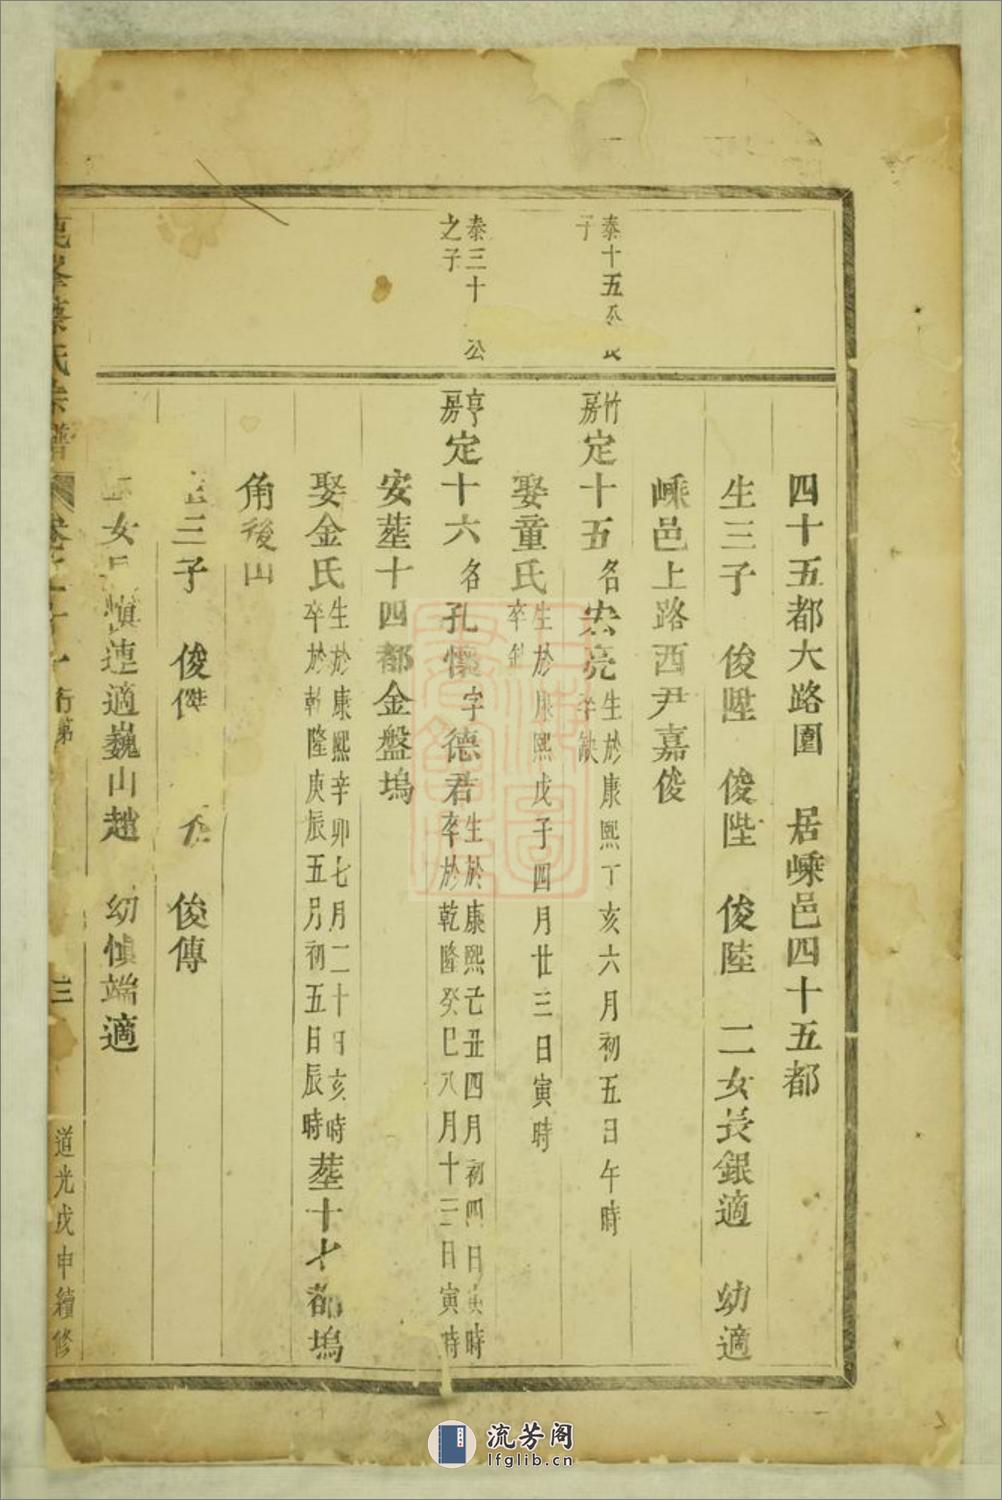 四十五都大路圍 居嵊邑四十五都
生三子 俊陞 俊陛 俊陸 二女長銀適 幼適
嵊邑上路西尹嘉俊
泰十五公長
子
竹房定十五名宏亮生於康熙丁亥六月初五日午時
卒缺
娶童氏生於康熙戊子四月廿三日寅時
卒缺
泰三十 公
之子
亨房定十六名孔懷字德君生於康熙己丑四月初四日寅時
卒於乾隆癸巳八月十三日寅時
安塟十四都金盤塢
娶金氏生於康熙辛卯七月二十日亥時
卒於乾隆庚辰五月初五日辰時塟十七都塢
角後山
三子 俊傑 俊傳
女 慎連適巍山趙 幼慎端適
峯蔡氏宗譜
行第
三
道光戊申續修
流芳阁
lfglib.cn